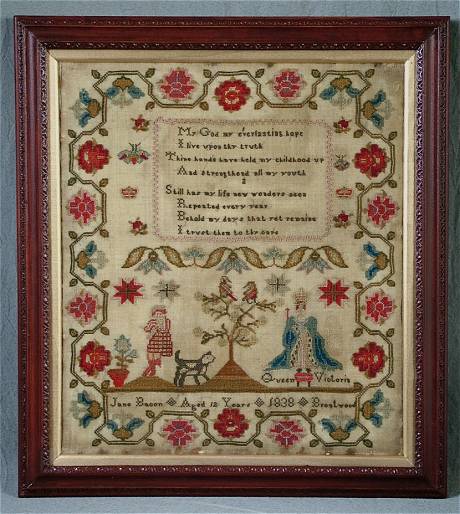 My God my everlasting hope
I live upon thy truth
Thine hands have held my childhood up
And strengthend all my youth
2
Still has my life new wonders seen
Repeated every year
Behold my days that yet remains
I trust them to thy care
Queen Victoria
Jane Bacon Aged 12 Years 1838 Brentwood